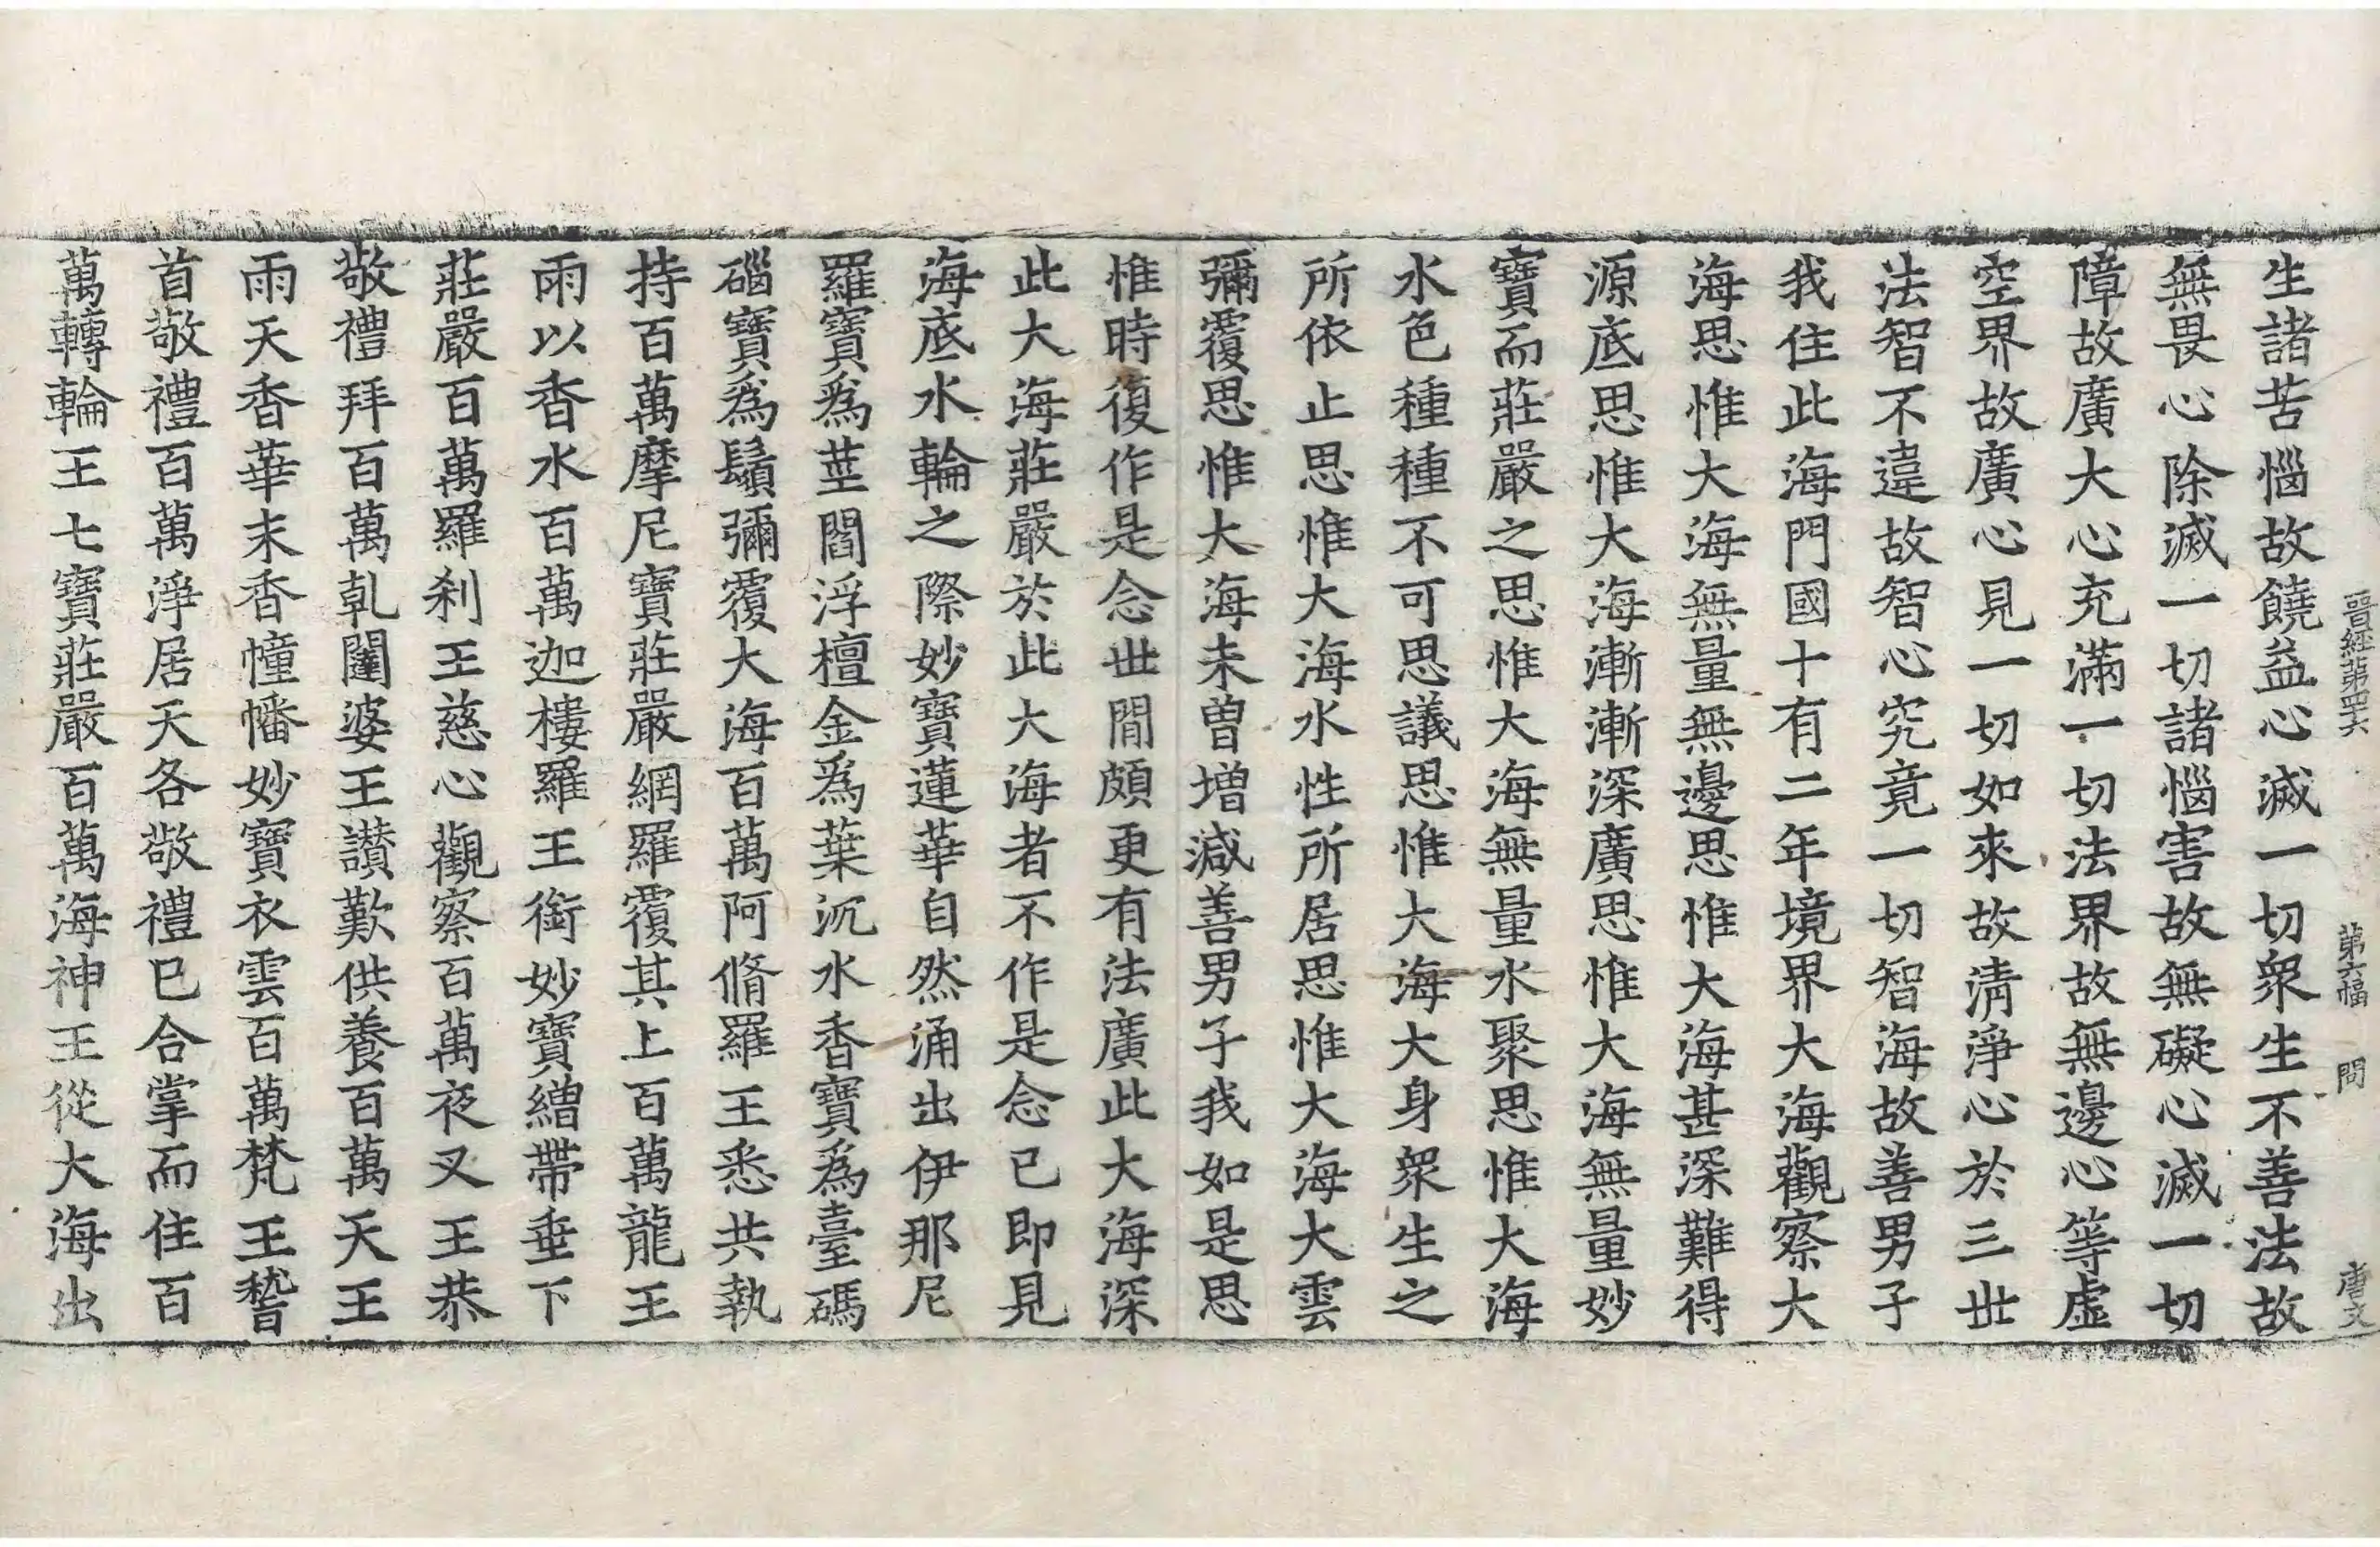 晉經第四六　第六幅　問　唐文
生諸苦惱故饒益心滅一切衆生不善法故
無畏心除滅一切諸惱害故無礙心滅一切
障故廣大心充滿一切法界故無邊心等虛
空界故廣心見一切如來故清淨心於三世
法智不違故智心究竟一切智海故善男子
我住此海門國十有二年境界大海觀察大
海思惟大海無量無邊思惟大海甚深難得
源底思惟大海漸漸深廣思惟大海無量妙
寶而莊嚴之思惟大海無量水聚思惟大海
水色種種不可思議思惟大海大身衆生之
所依止思惟大海水性所居思惟大海大雲
彌覆思惟大海未曽增減善男子我如是思
惟時復作是念世間頗更有法廣此大海深
此大海莊嚴於此大海者不作是念已即見
海底水輪之際妙寶蓮華自然涌出伊那尼
羅寶爲莖閻浮檀金爲葉沉水香寶爲臺碼
碯寶爲鬚彌覆大海百萬阿脩羅王悉共執
持百萬摩尼寶莊嚴網羅覆其上百萬龍王
雨以香水百萬迦樓羅王銜妙寶繒帶垂下
莊嚴百萬羅刹王慈心觀察百萬夜叉王恭
敬禮拜百萬乹闥婆王讃歎供養百萬天王
雨天香華末香幢幡妙寶衣雲百萬梵王䭫
首敬禮百萬淨居天各敬禮已合掌而住百
萬轉輪王七寶莊嚴百萬海神王從大海出